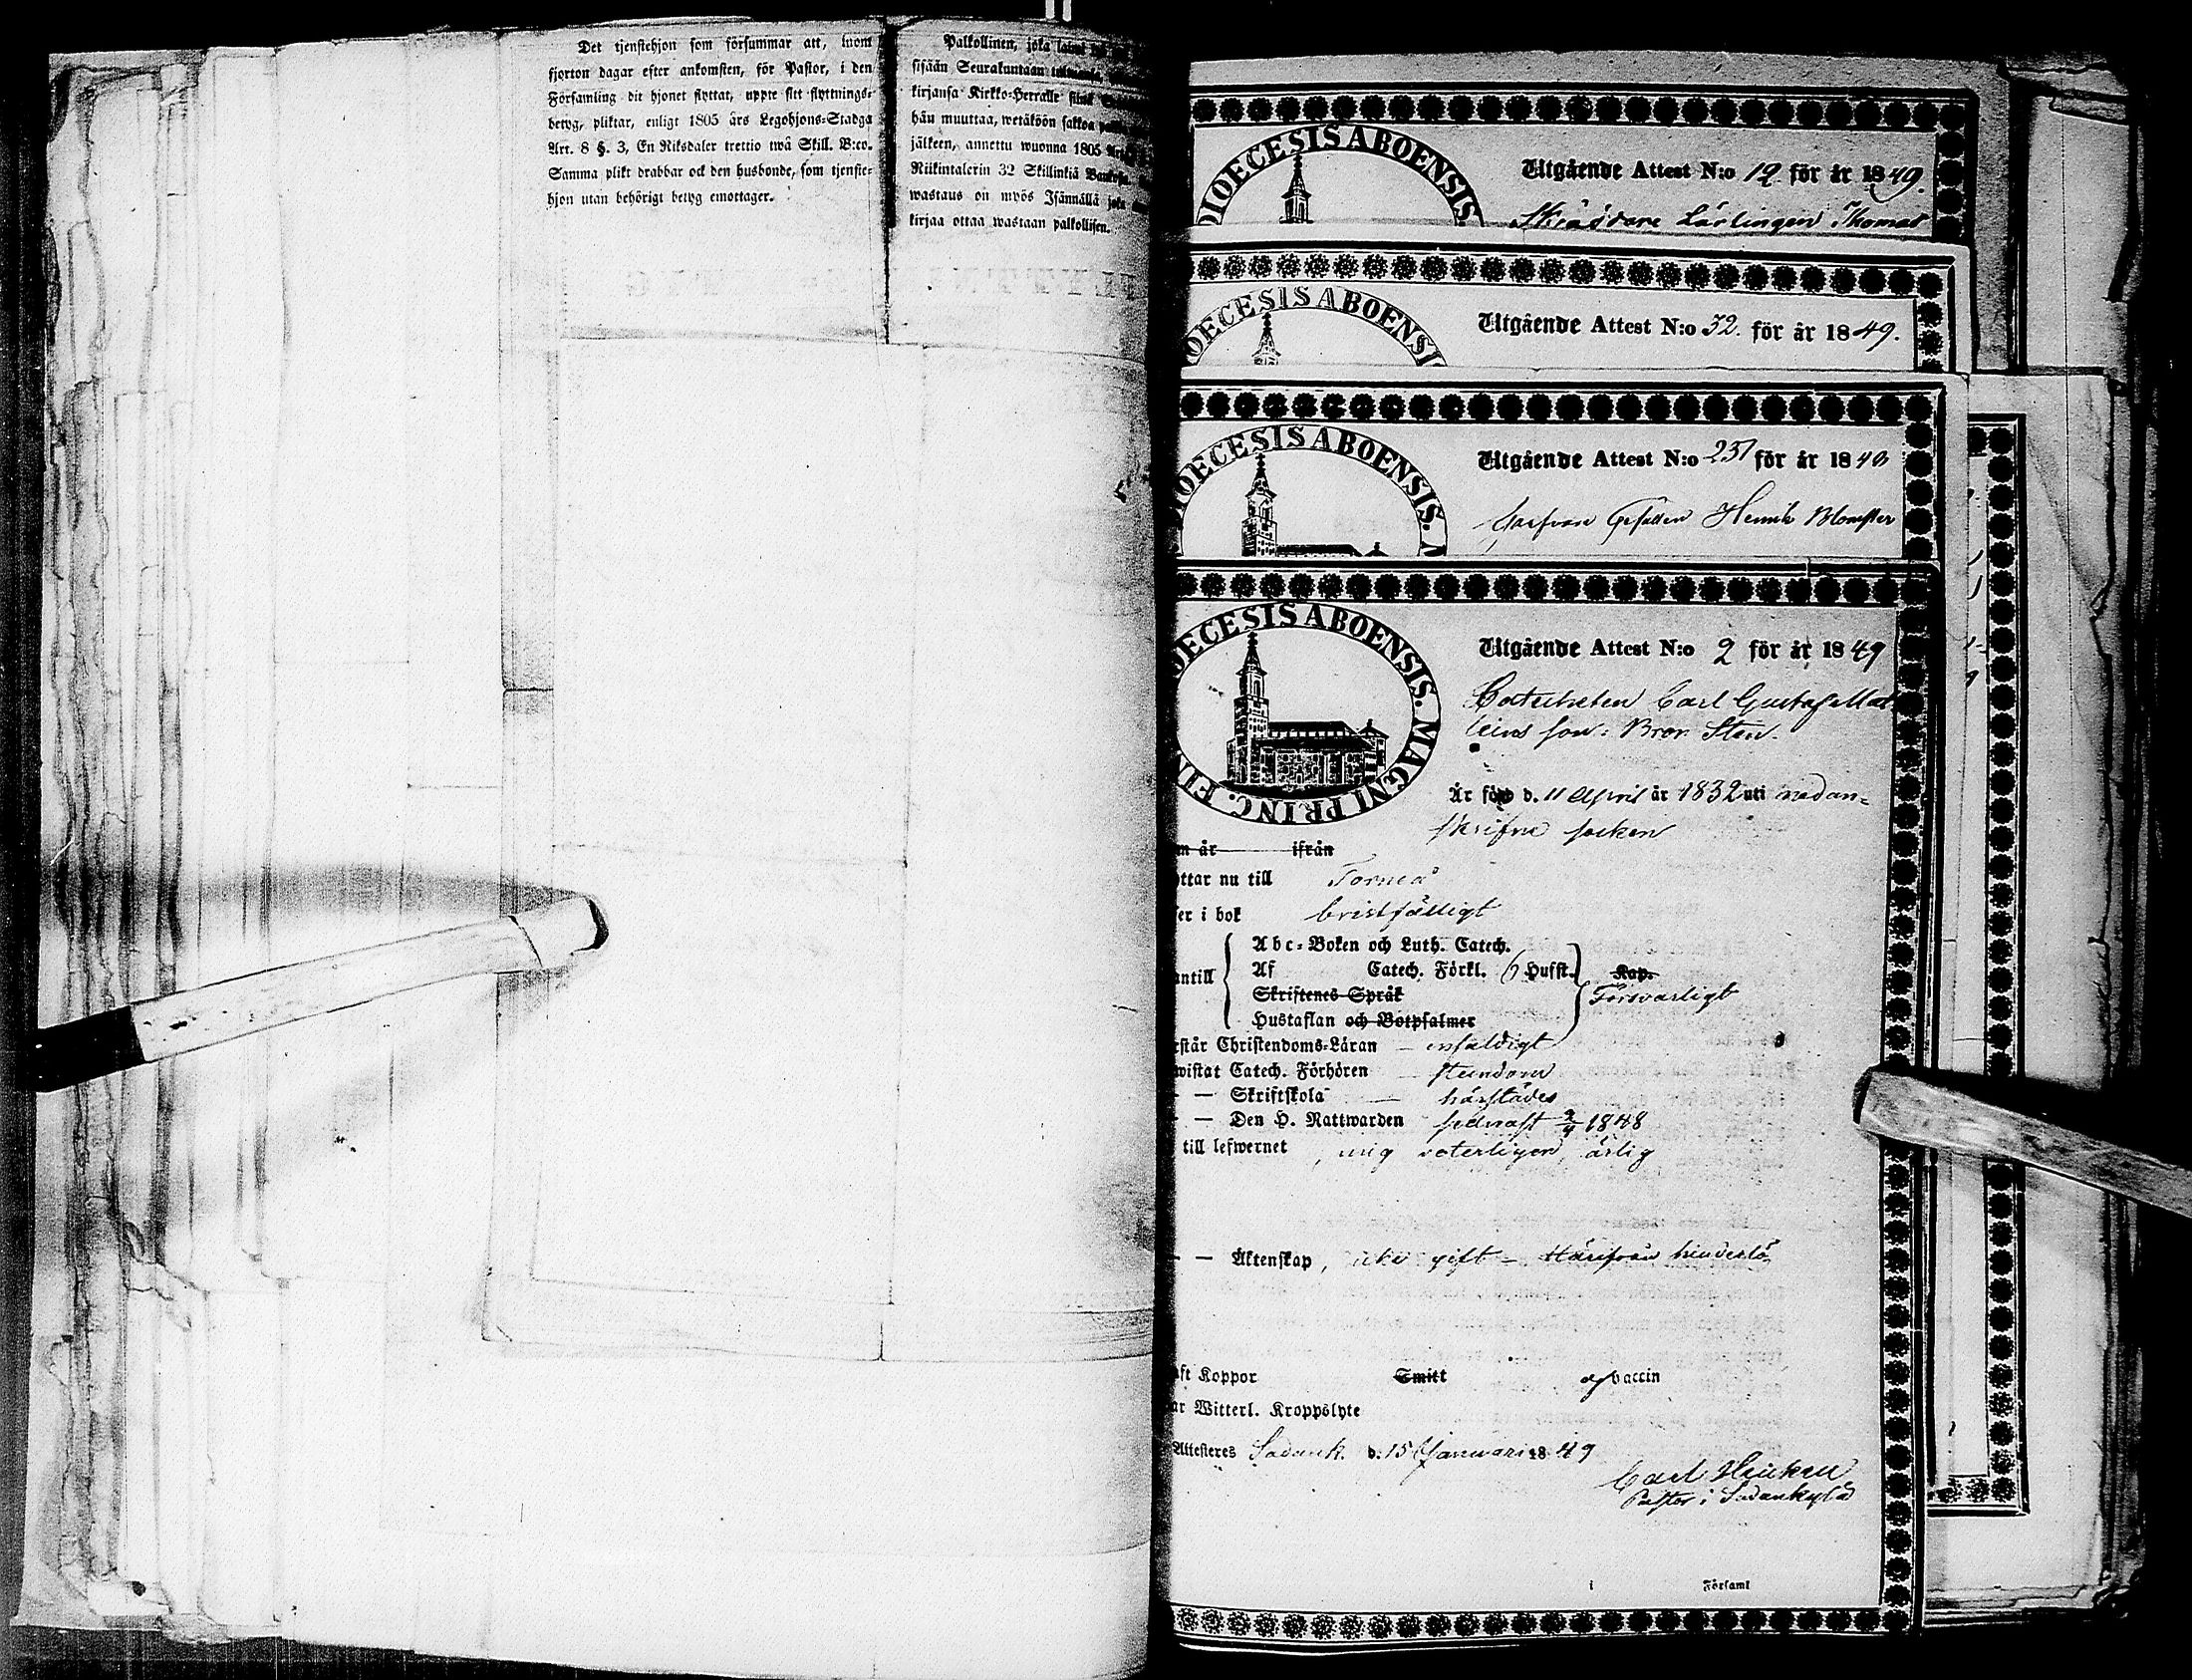 Det tjenstehjon som försummar att, inom
fjorton dagar efter ankomsten, för Pastor, i den
Församling dit hjonet flyttat, uppte sitt flyttnings-
betyg, pliktar, enligt 1805 års Legohjons-Stadga
Art. 8 §. 3, En Riksdaler trettio twå Skill. B:co.
Samma plikt drabbar ock den husbonde, som tjenste-
hjon utan behörigt betyg emottager.
Palkollinen, joka
sisään Seurakuntaan
kirjansa Kirkko-Herralle
hän muuttaa, wetäköön sakkoa
jälkeen, annettu wuonna 1805
Riikintalerin 32 Skillinkiä
wastaus on myös Isännällä joka
kirjaa ottaa wastaan palkollisen.
DIOECESIS ABOENSIS.
Utgående Attest N:o 12 för år 1849.
Skräddare Lärlingen Thomas
OECESIS ABOENSI
Utgående Attest N:o 32. för år 1849.
IOECESIS ABOENSIS. M
Utgående Attest N:o 251 för år 18
Gesällen Henrik Blomster
OECESIS ABOENSIS. MAGNI PRINC. FIN
Utgående Attest N:o 2 för år 1849
Catecheten Carl Gustaf Mat
leins son: Bror Sten.
Är född d. 11 April år 1832 uti nedan-
skrifne socken
m år ifrån
ttar nu till Torneå
er i bok bristfälligt
Abc-Boken och Luth. Catech.
antill Af Catech. Förkl. 6 Hufst. Kap.
Skriftenes Språk Försvarligt
Hustaflan och Botpsalmer
rstår Christendoms-Läran – enfaldigt
wistat Catech. Förhören – stundom
– – Skriftskola – härstädes
– – Den H. Nattwarden sednast 2/4 1848
till lefwernet , mig veterligen, ärlig
– – Äktenskap, icke gift – Härifrån hinderlös
ft Koppor Smitt af vaccin
ar Witterl. Kroppslyte
Attesteres Sodank. d. 15 Januari 1849
Carl Heiken
Pastor i Sodankylä
i Församl